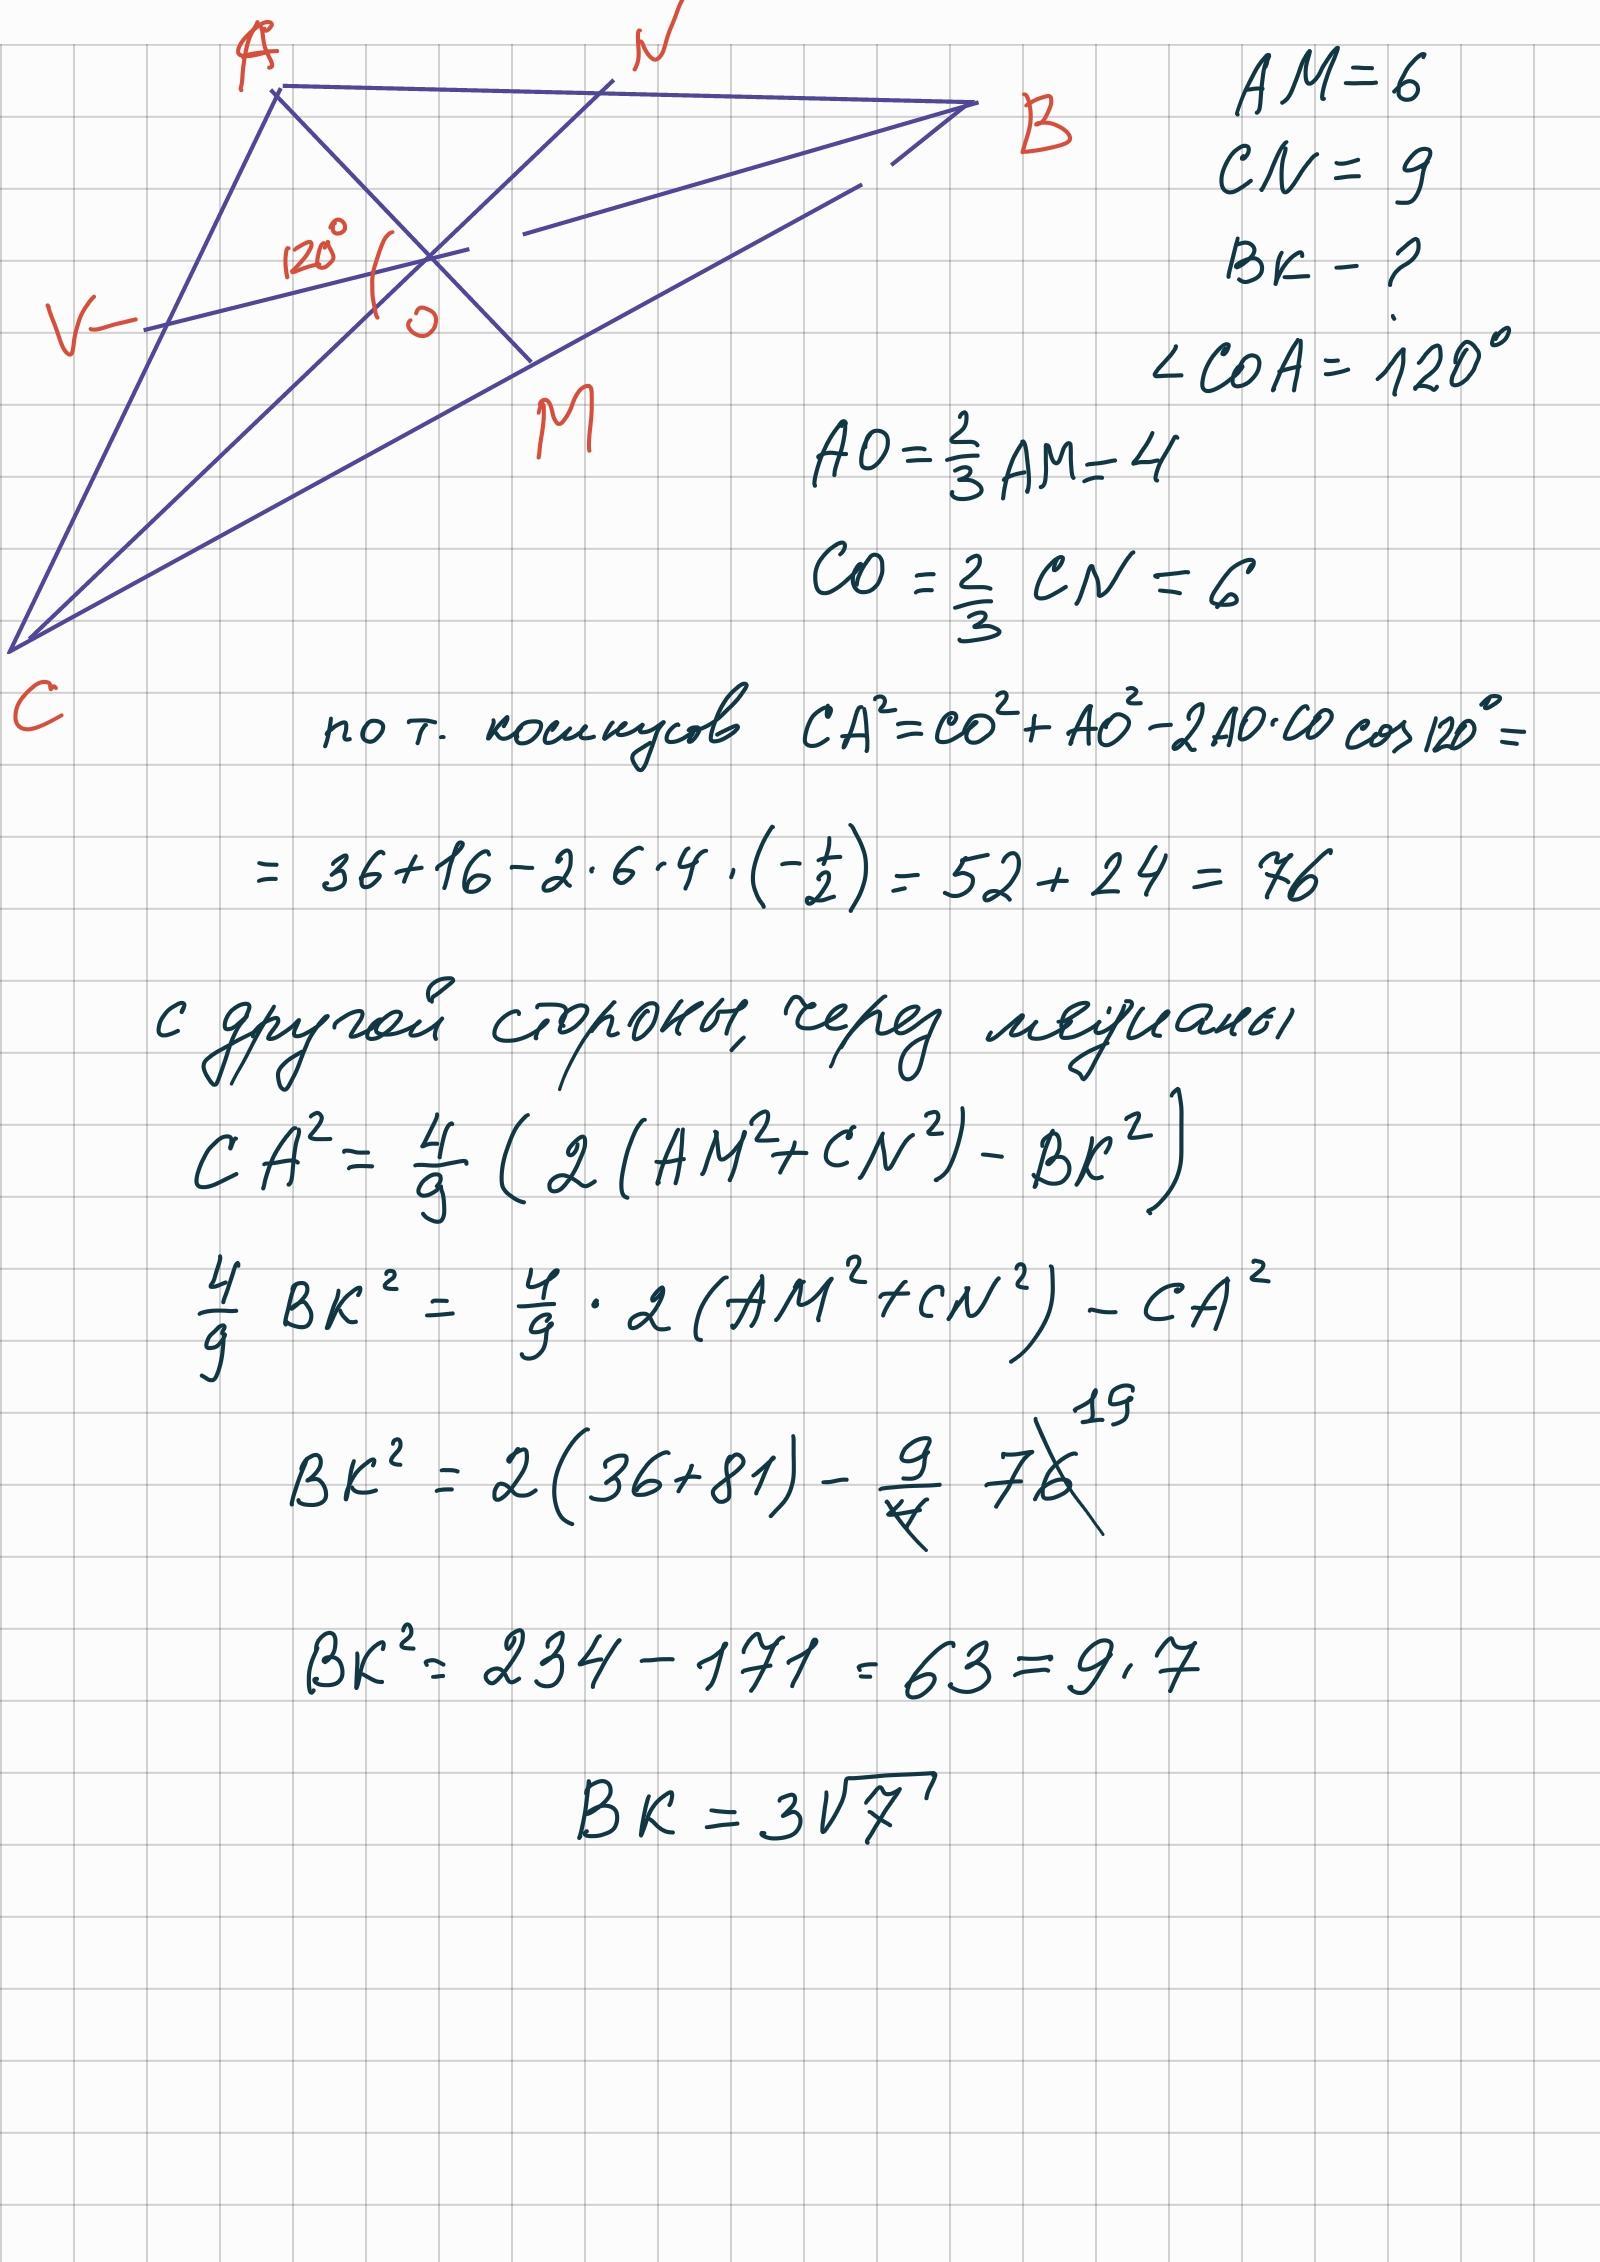 A
N
B
120°
K
O
M
C
AM = 6
CN = 9
BK - ?
∠COA = 120°
AO = 2/3 AM = 4
CO = 2/3 CN = 6
по т. косинусов CA² = CO² + AO² - 2AO·CO cos 120° =
= 36 + 16 - 2·6·4·(-1/2) = 52 + 24 = 76
с другой стороны, через медианы
CA² = 4/9 (2(AM² + CN²) - BK²)
4/9 BK² = 4/9 · 2(AM² + CN²) - CA²
BK² = 2(36 + 81) - 9/4 76 19
BK² = 234 - 171 = 63 = 9·7
BK = 3√7